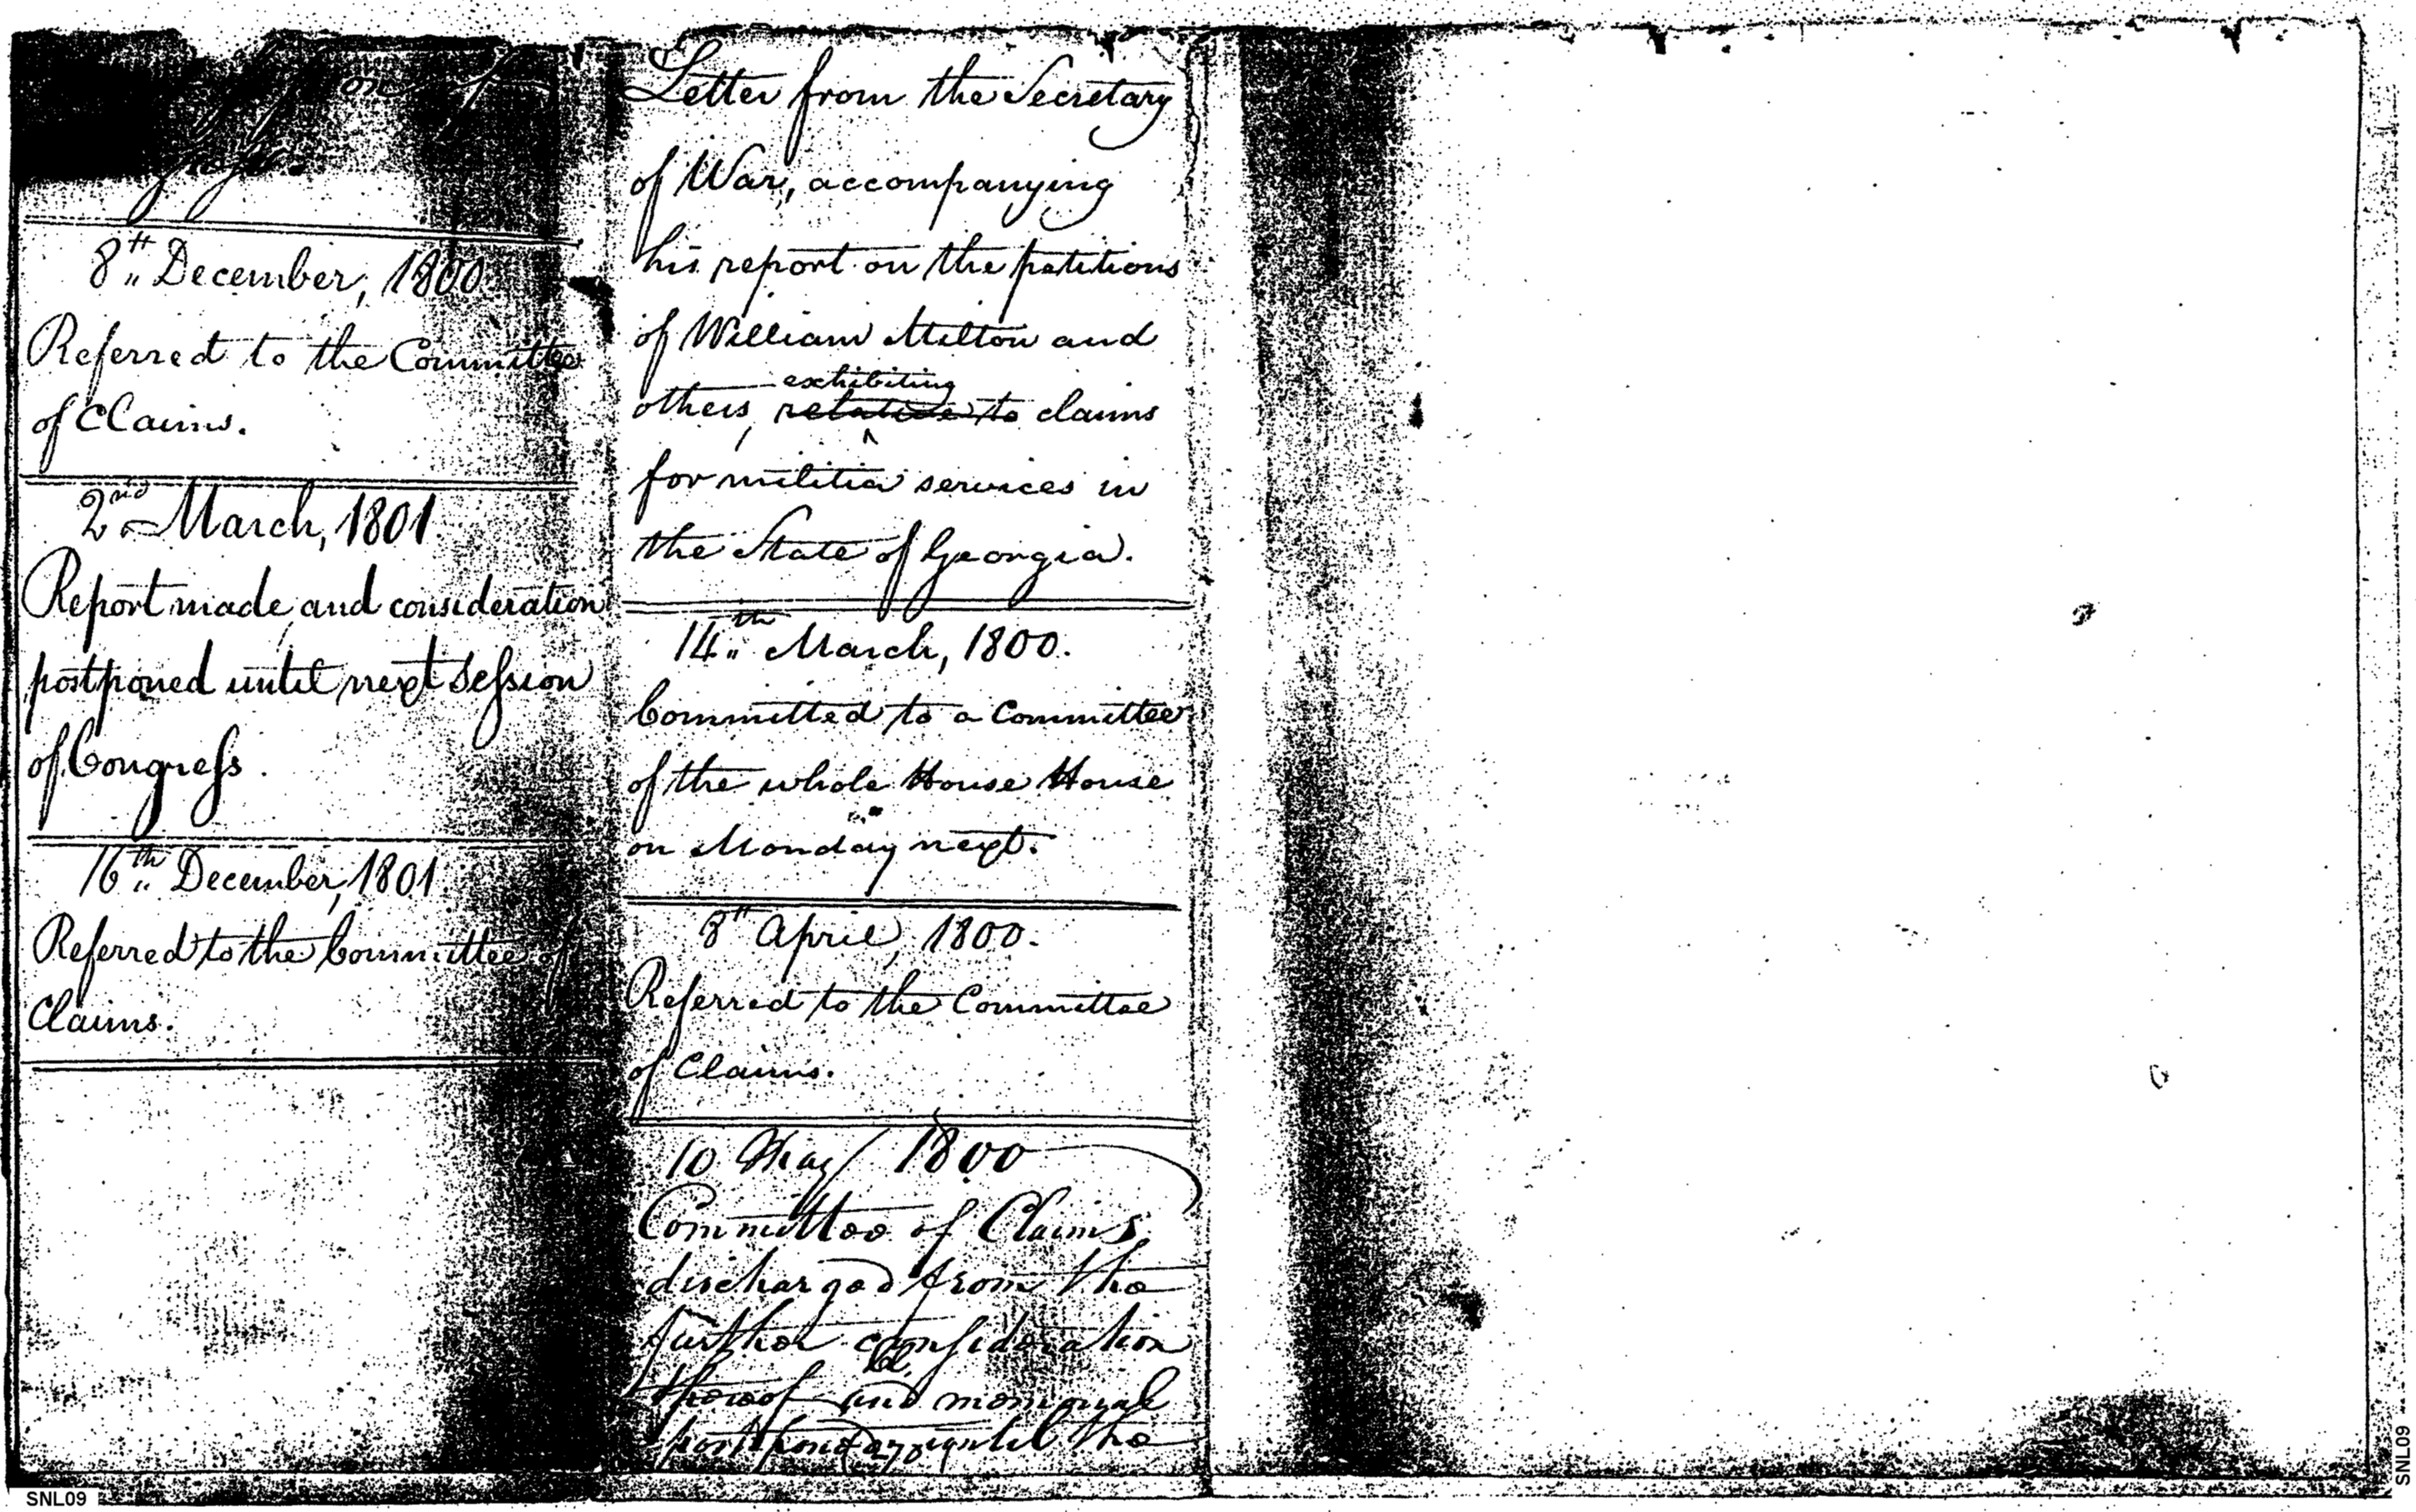 on of
8th December, 1800.
Referred to the Committee
of Claims.
2nd March, 1801.
Report made, and consideration
postponed until next Session
of Congress.
16th December, 1801
Referred to the Committee of
Claims.
Letter from the Secretary
of War, accompanying
his report on the petitions
of William Milton and
exhibiting
others, relative to claims
for militia services in
the State of Georgia.
14th March, 1800.
Committed to a Committee
of the whole House House
on Monday next.
8th April, 1800.
Referred to the Committee
of Claims.
10 May 1800
Committee of Claims
discharged from the
further consideration
thereof and
until the
SNL09
SNL09